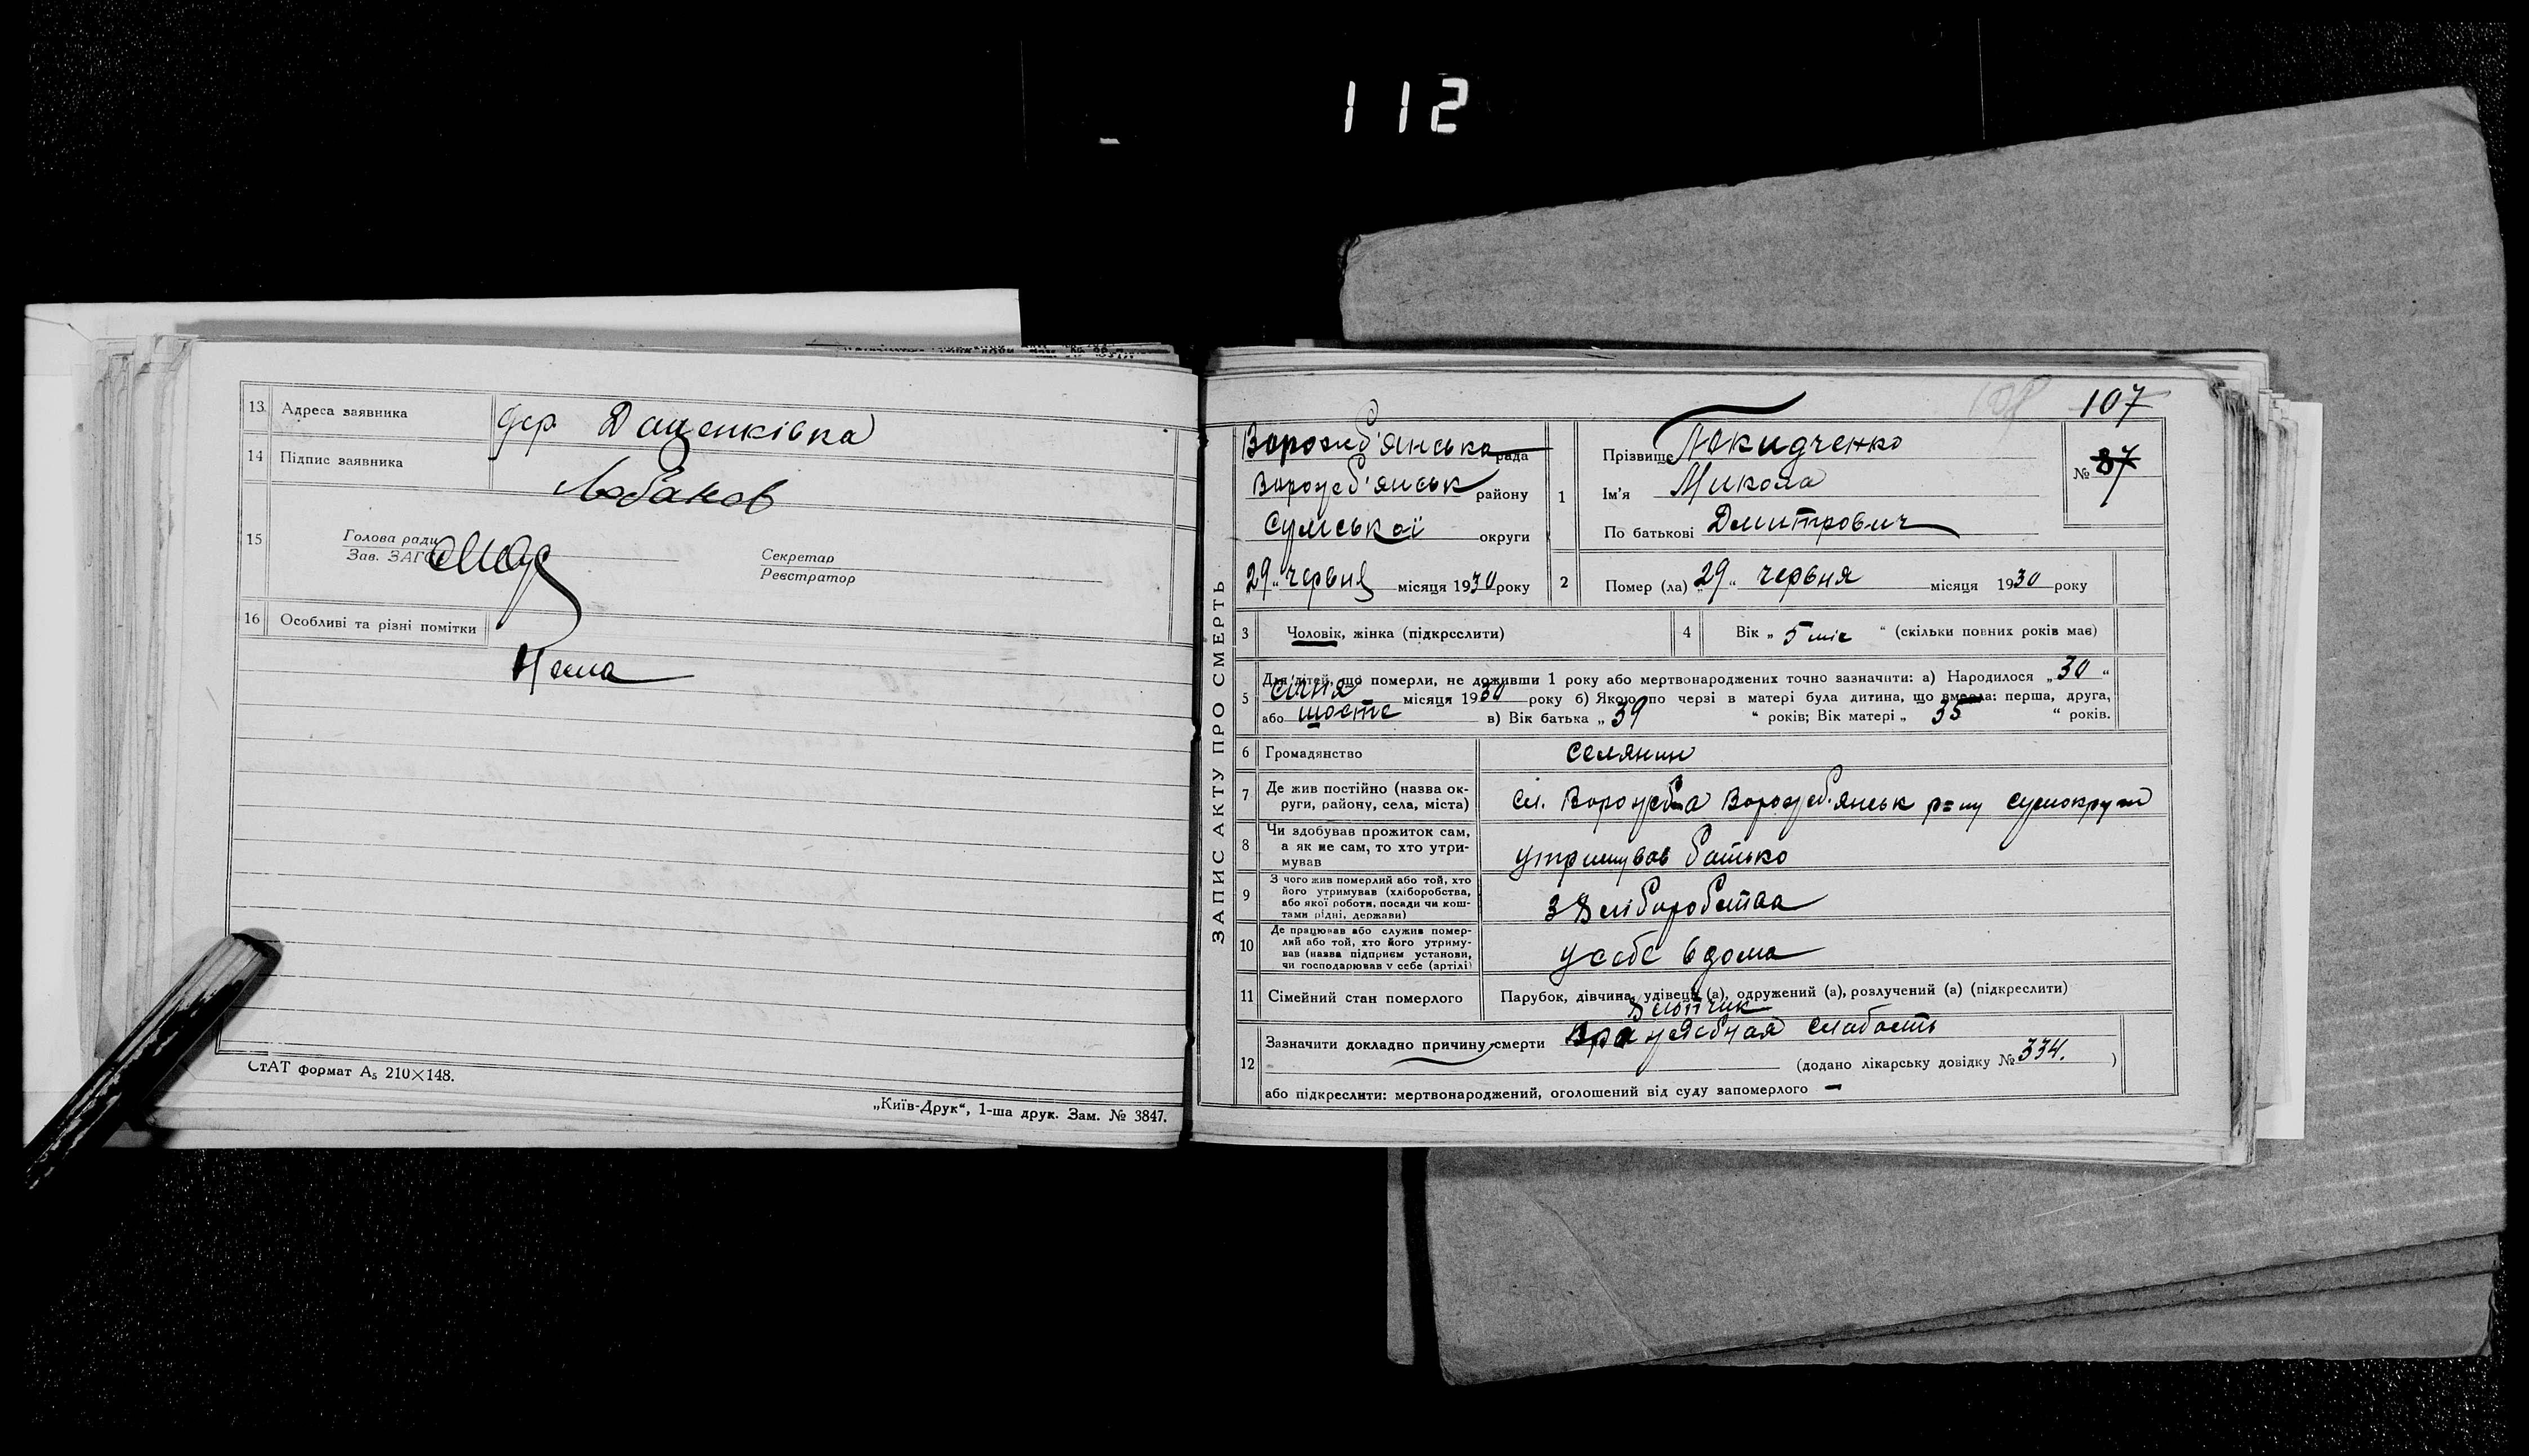 112
13 Адреса заявника дер. Даценківка
14 Підпис заявника Лобанов
15 Голова ради
Зав. ЗАГС
Секретар
Реєстратор
16 Особливі та різні помітки
Нема
СтАТ формат А₅ 210×148.
„Київ-Друк“, 1-ша друк. Зам. № 3847.
108 107
ЗАПИС АКТУ ПРО СМЕРТЬ
Ворожб'янська рада
Ворожеб'янськ району
Сумської округи
29 „ червня місяця 1930 року
1 Прізвище Покидченко
Ім'я Микола
По батькові Дмитрович
№ 87
2 Помер (ла) „29“ червня місяця 1930 року
3 Чоловік, жінка (підкреслити)
4 Вік „ 5 міс “ (скільки повних років має)
5 Для дітей, що померли, не доживши 1 року або мертвонароджених точно зазначити: а) Народилося „30“
січня місяця 1930 року б) Якою по черзі в матері була дитина, що вмерла: перша, друга,
або шосте в) Вік батька „ 39 “ років; Вік матері „ 35 “ років.
6 Громадянство селянин
7 Де жив постійно (назва ок-
руги, району, села, міста) сл. Ворожеба Ворожеб'янськ р=ну Сумокруги
8 Чи здобував прожиток сам,
а як не сам, то хто утри-
мував утримував батько
9 З чого жив померлий або той, хто
його утримував (хліборобства,
або якої роботи, посади чи кош-
тами рідні, держави) з хліборобства
10 Де працював або служив помер-
лий або той, хто його утриму-
вав (назва підприєм установи,
чи господарював у себе (артілі) у себе вдома
11 Сімейний стан померлого Парубок, дівчина, удівець (а), одружений (а), розлучений (а) (підкреслити)
хлопчик
12 Зазначити докладно причину смерти слабость
(додано лікарську довідку № 334. )
або підкреслити: мертвонароджений, оголошений від суду запомерлого —